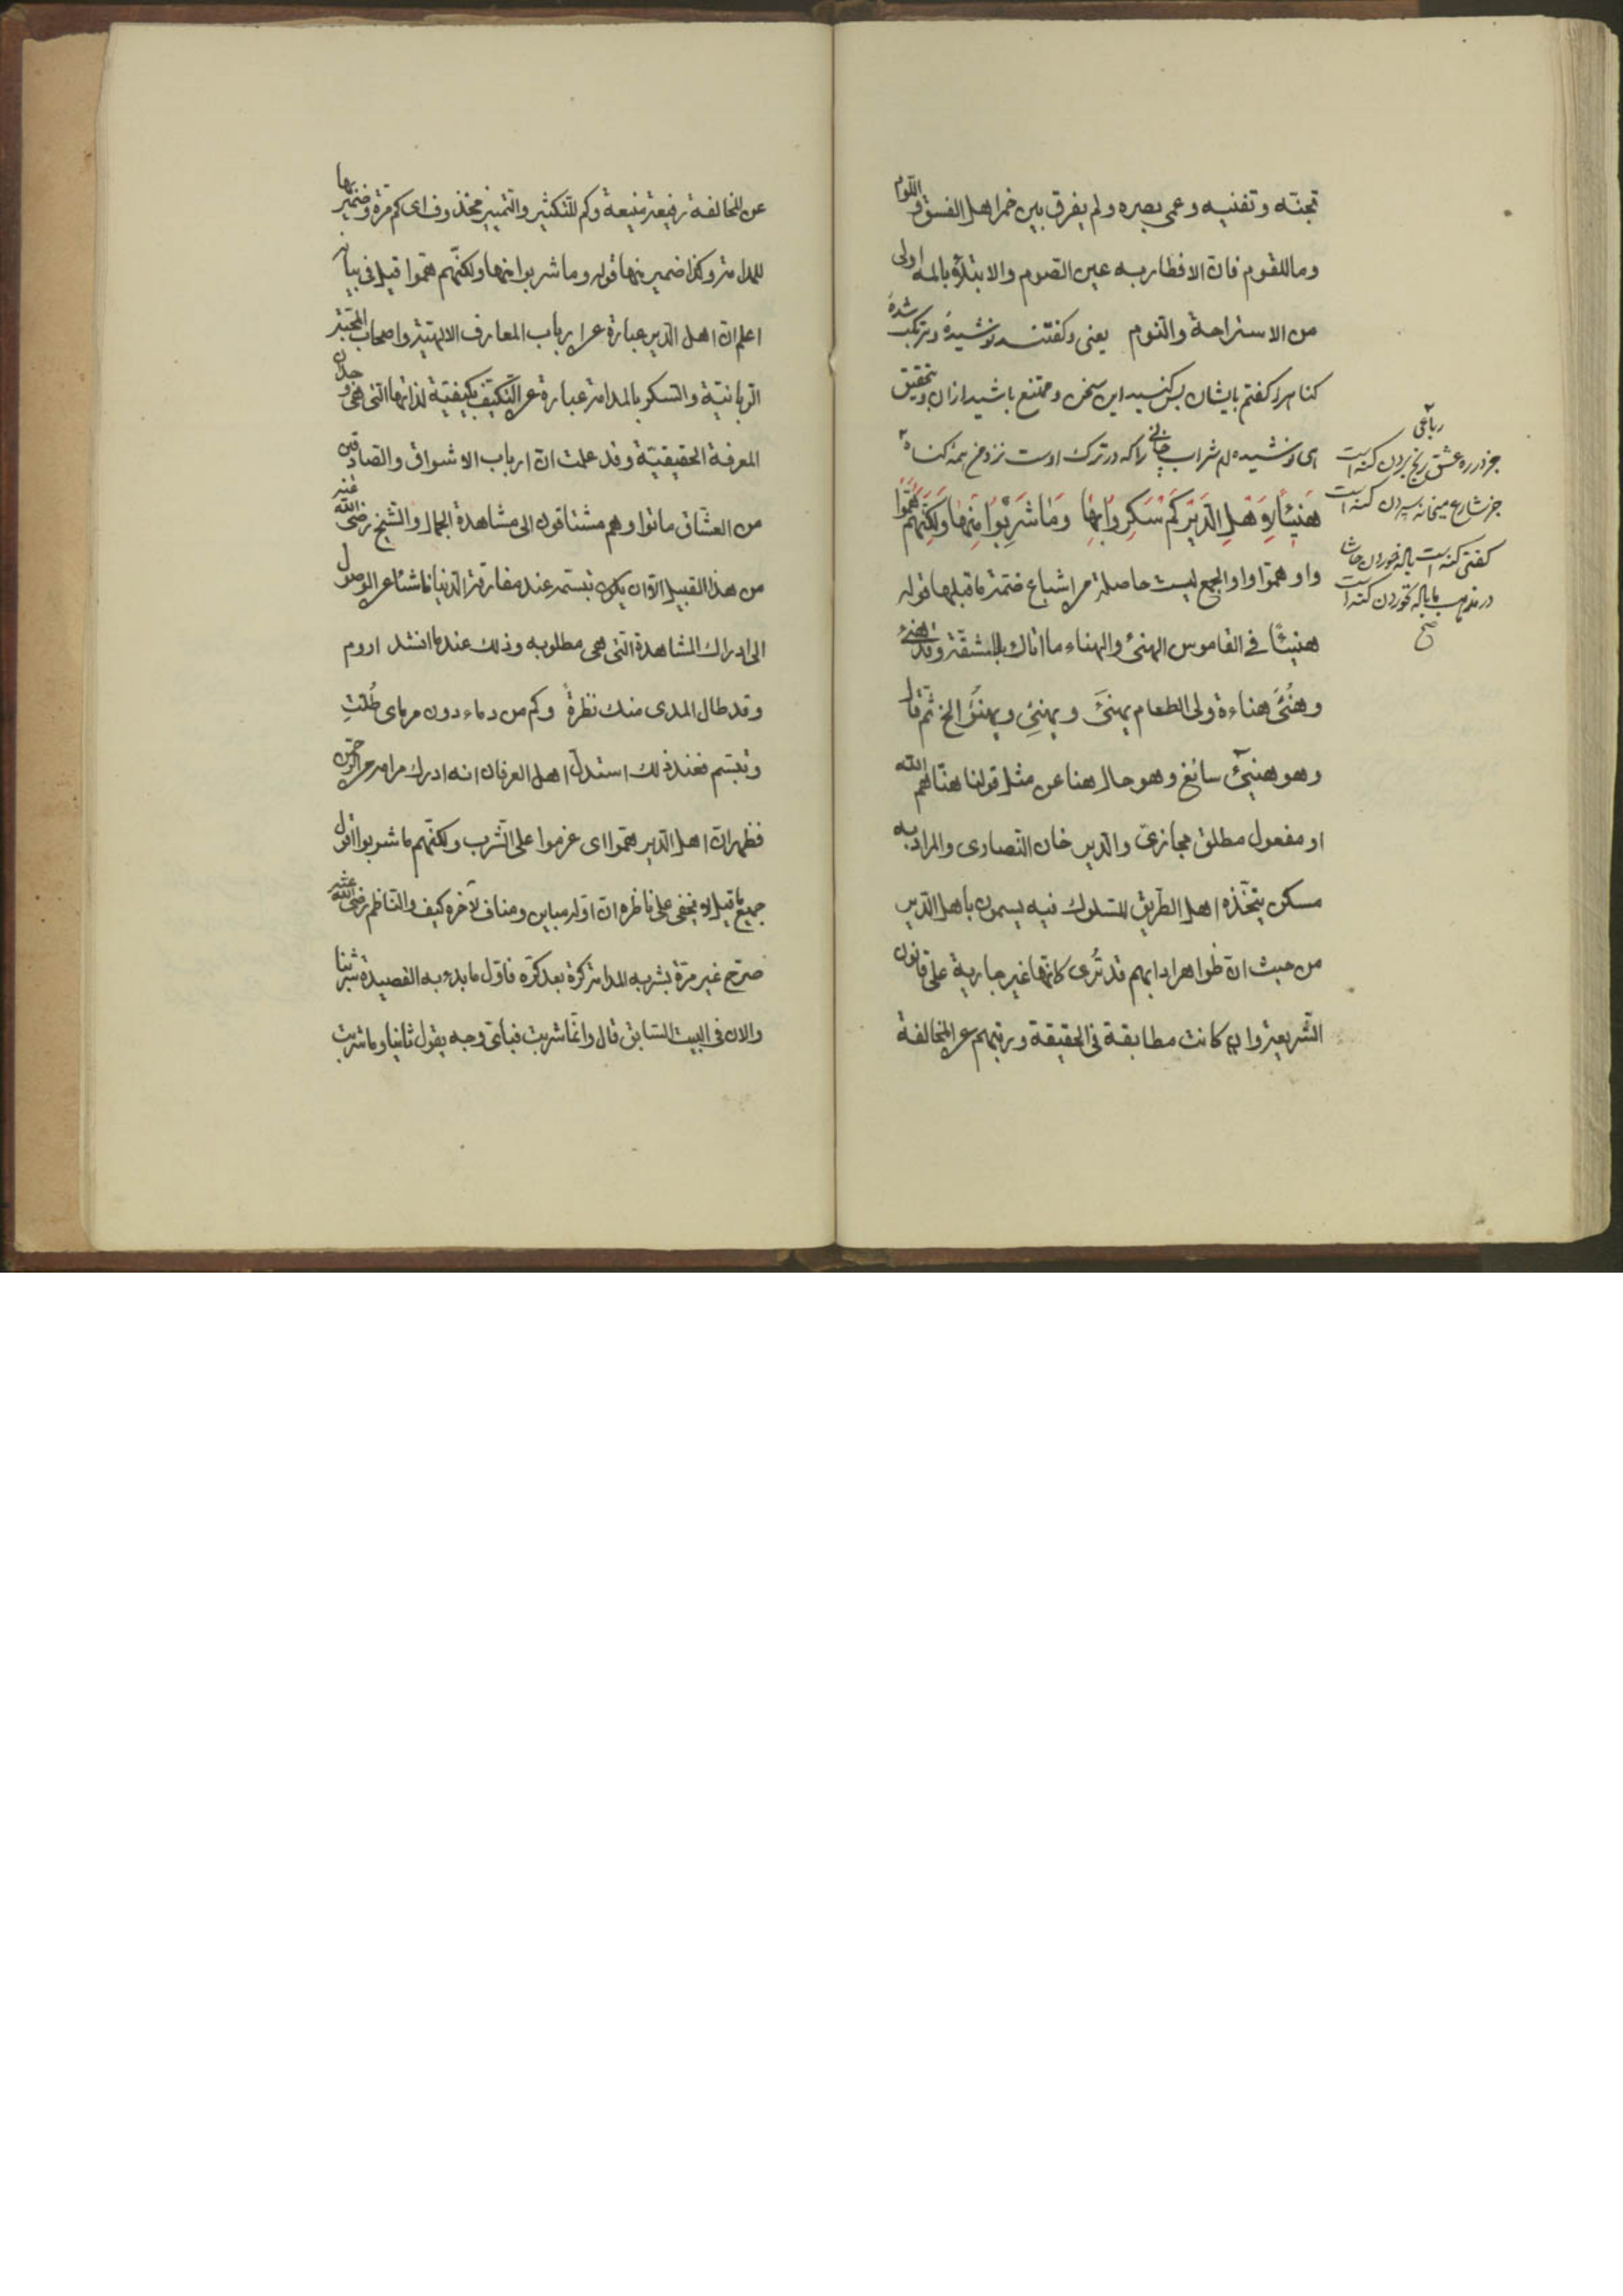 تجنّه وتفنيه وعمی بصره ولم يفرق بين خمر اهل الفسق واللّوم
وما للقوم فانّ الافطار به عين الصّوم والابتلاء بالمه اولی
من الاستراحة والنّوم يعنی وكفتند نوشیدهٔ ومرتکب شدهٔ
كناه را كفتم بايشان بس كنيد اين سخن وممتنع باشيد ازان وبتحقيق
ای نوشيده ام شراب جانی را كه در ترك اوست نزد من همه كناه
هَنِيئًا لِاَهْلِ الدَّيْرِ كَمْ سَكِرُوا بِهَا وَمَا شَرِبُوا مِنْهَا وَلَكِنَّهُمْ هَمُّوا
واو همّوا واو الجمع ليست حاصلة من اشباع ضمّة ما قبلها قوله
هنيئًا فی القاموس الهنئ والهناء ما اتاك بلا مشقّة وقد هنئ
وهنُئَ هناءة ولی الطعام يهنَئ ويهنِئ ويهنُؤ الخ ثمّ قال
وهو هنیٓئ سائغ وهو حال هنا عن مثل قولنا هنّاهم الله
او مفعول مطلق مجازیّ والدّير خان النّصاری والمراد به
مسكن يتّخذه اهل الطّريق للسّلوك فيه يسمون باهل الدّير
من حيث انّ ظواهر ادابهم قد تُری كانّها غير جارية علی قانون
الشّريعة وان كانت مطابقة فی الحقيقة ورتبهم عن المخالفة
رباعی
جز در ره عشق رنج بردن كنه است
جز شارع ميخانه سپردن كنه است
كفتی كنه است باله خوردن حاشا
در مذهب ما باله نخوردن كنه است
صح
عن المخالفة رفيعة منيعة وكم للتّكثير والتّمييز محذوف ای كم مرّة وضمير بها
للمدامة وكذا ضمير منها قوله وما شربوا منها ولكنّهم همّوا قيل فی بيانه
اعلم انّ اهل الدّير عبارة عن ارباب المعارف الالهيّة واصحاب المحبّة
الرّبانيّة والسّكر بالمدامة عبارة عن التّكيّف بكيفيّة لذاتها الّتی هی وجدان
المعرفة الحقيقيّة وقد علمت انّ ارباب الاشواق والصّادقين
من العشّاق ماتوا وهم مشتاقون الی مشاهدة الجمال والشّيخ رضی الله عنه
من هذا القبيل الّا ان يكون تبسّمه عند مفارقة الدّنيا ناشئا عن الوصول
الی ادراك المشاهدة الّتی هی مطلوبه وذلك عندما انشد اروم
وقد طال المدی منك نظرةً وكم من دماء دون مرمای طُلّتِ
وتبسّم فعند ذلك استدلّ اهل العرفان انه ادرك مرامه من الرّحمن
فظهر انّ اهل الدّير همّوا ای عزموا علی الشّرب ولكنّهم ما شربوا اقول
جميع ما قيل لا يخفی علی ناظره انّ اوّله مباين ومناف لآخره كيف والنّاظم رضی الله عنه
صرّح غير مرّة بشربه المدامة كرّة بعد كرّه فاوّل ما بدء به القصيدة شربنا
والان فی البيت السّابق قال وانّما شربت فبأیّ وجه يقول ثانيا وما شربت